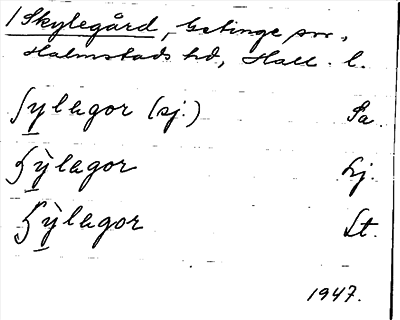 / Skylegård, Getinge sn.,
Halmstads hd, Hall. l.
ʃylagor (sj.) Sa.
ʃỳlagor Lj.
ʃỳlagor Lt.
1947.